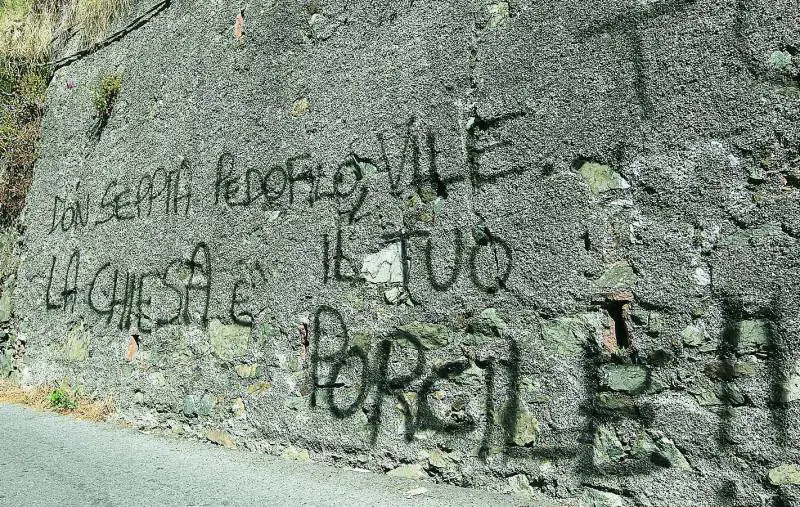 DON SEPPIA PEDOFILO, VILE.
LA CHIESA È IL TUO
PORCILE!!